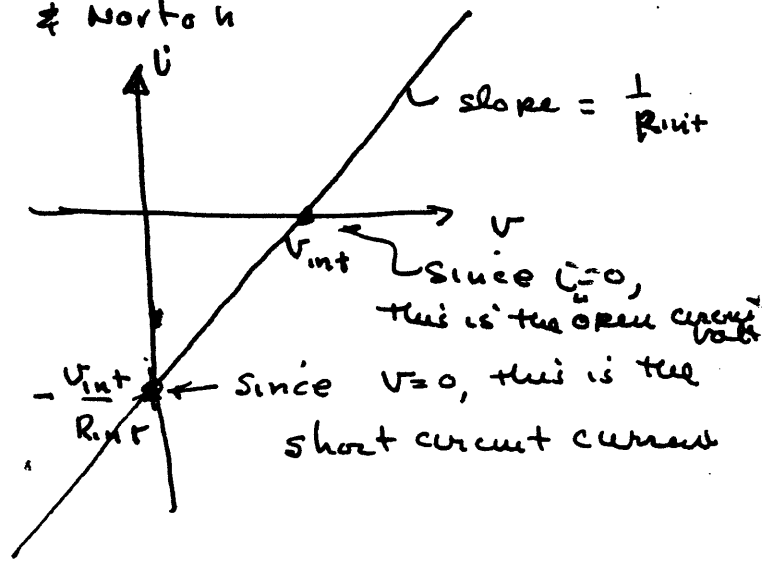 & Norton
i
slope = 1/Rint
v
vint
Since i=0,
this is the open circuit volt
- vint/Rint
Since v=0, this is the
short circuit current